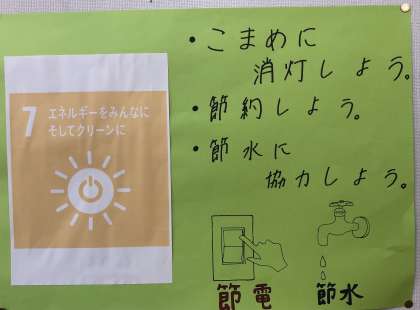 7 エネルギーをみんなに
そしてクリーンに
・こまめに
消灯しよう。
・節約しよう。
・節水に
協力しよう。
節電
節水